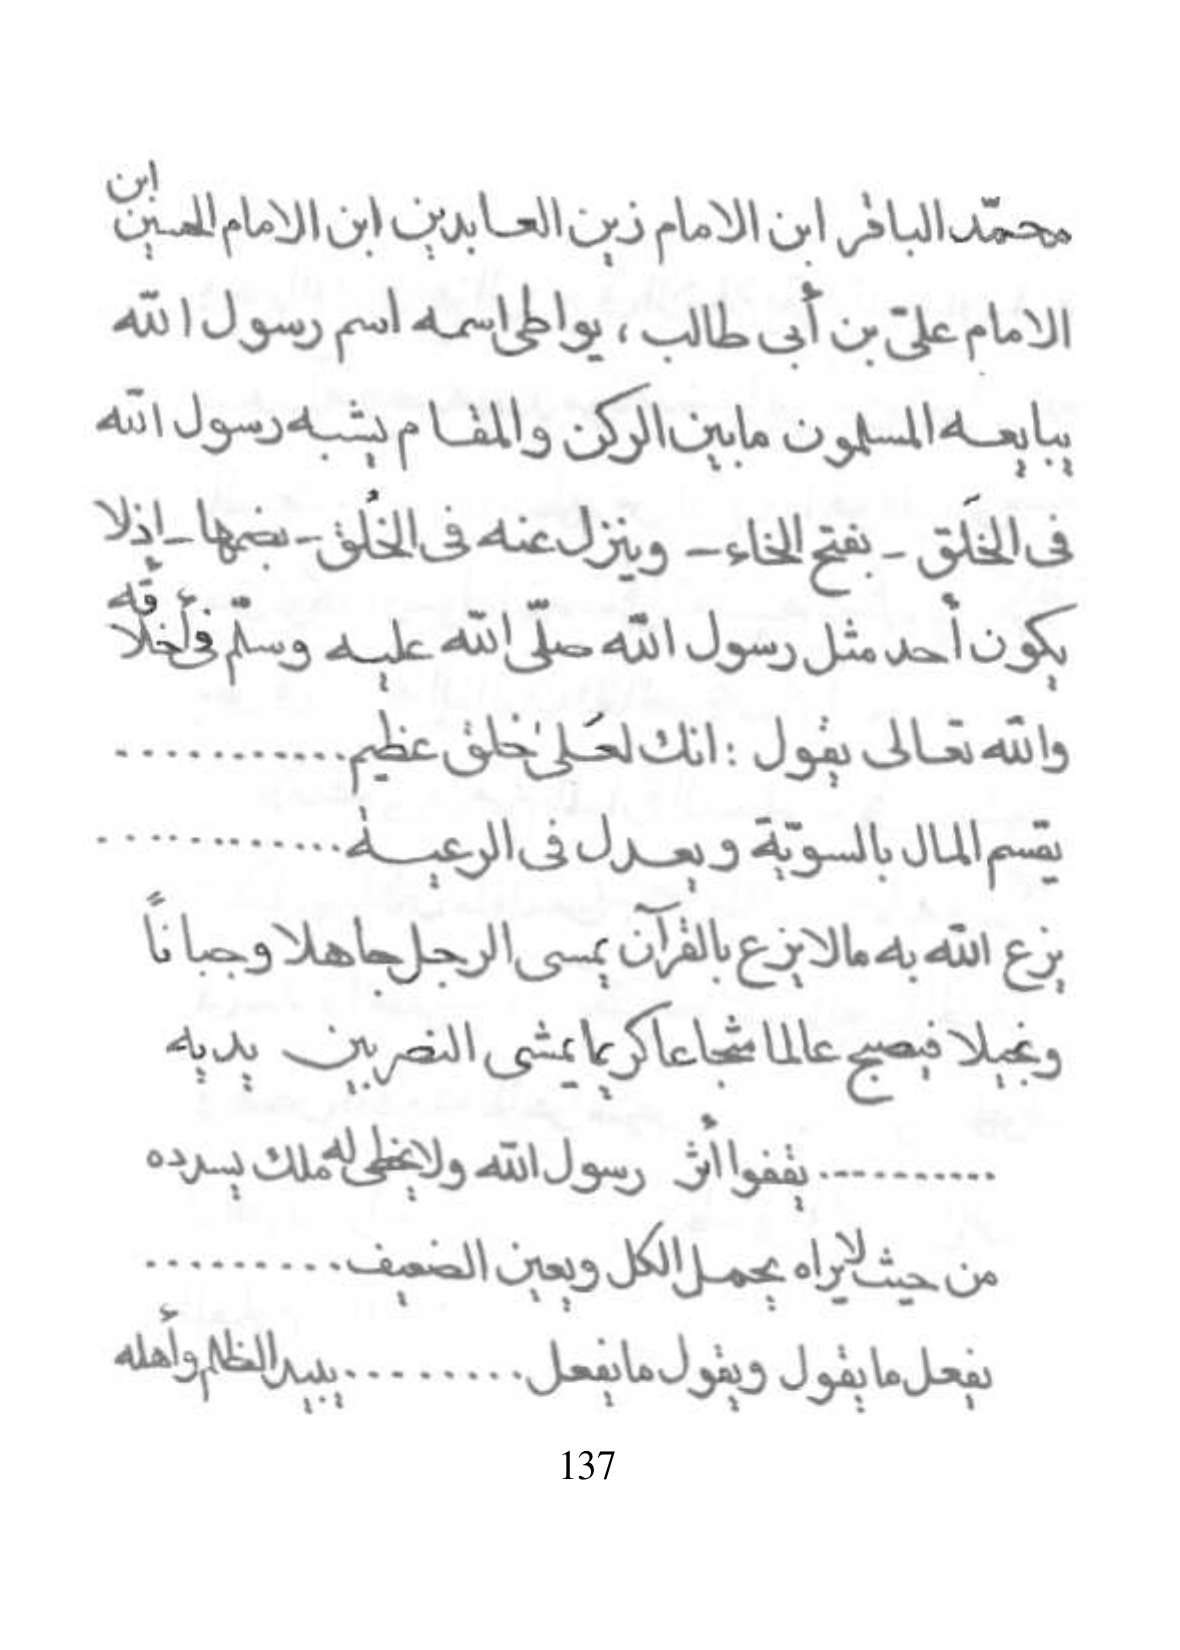 محمّد الباقر ابن الامام زين العابدين ابن الامام الحسين ابن
الامام علىّ بن أبى طالب ، يواطى اسمه اسم رسول الله
يبايعه المسلمون مابين الركن والمقام يشبه رسول الله
فى الخَلق - بفتح الخاء - وينزل عنه فى الخُلق - بضمها - إذلا
يكون أحد مثل رسول الله صلّى الله عليه وسلّم فى أخلاقه
والله تعالى يقول : انك لعَلىٰ خلق عظيم...........
يقسم المال بالسويّة ويعدل فى الرعية............
يزع الله به مالا يزع بالقرآن يمسى الرجل جاهلا وجباناً
وبخيلا فيصبح عالما شجاعا كريما يمشى النصر بين يديه
.......... يقفوا أثر رسول الله ولا يخطى له ملك يسدده
من حيث لا يراه يحمل الكل ويعين الضعيف.........
يفعل ما يقول ويقول ما يفعل........يبيد الظلم وأهله
137